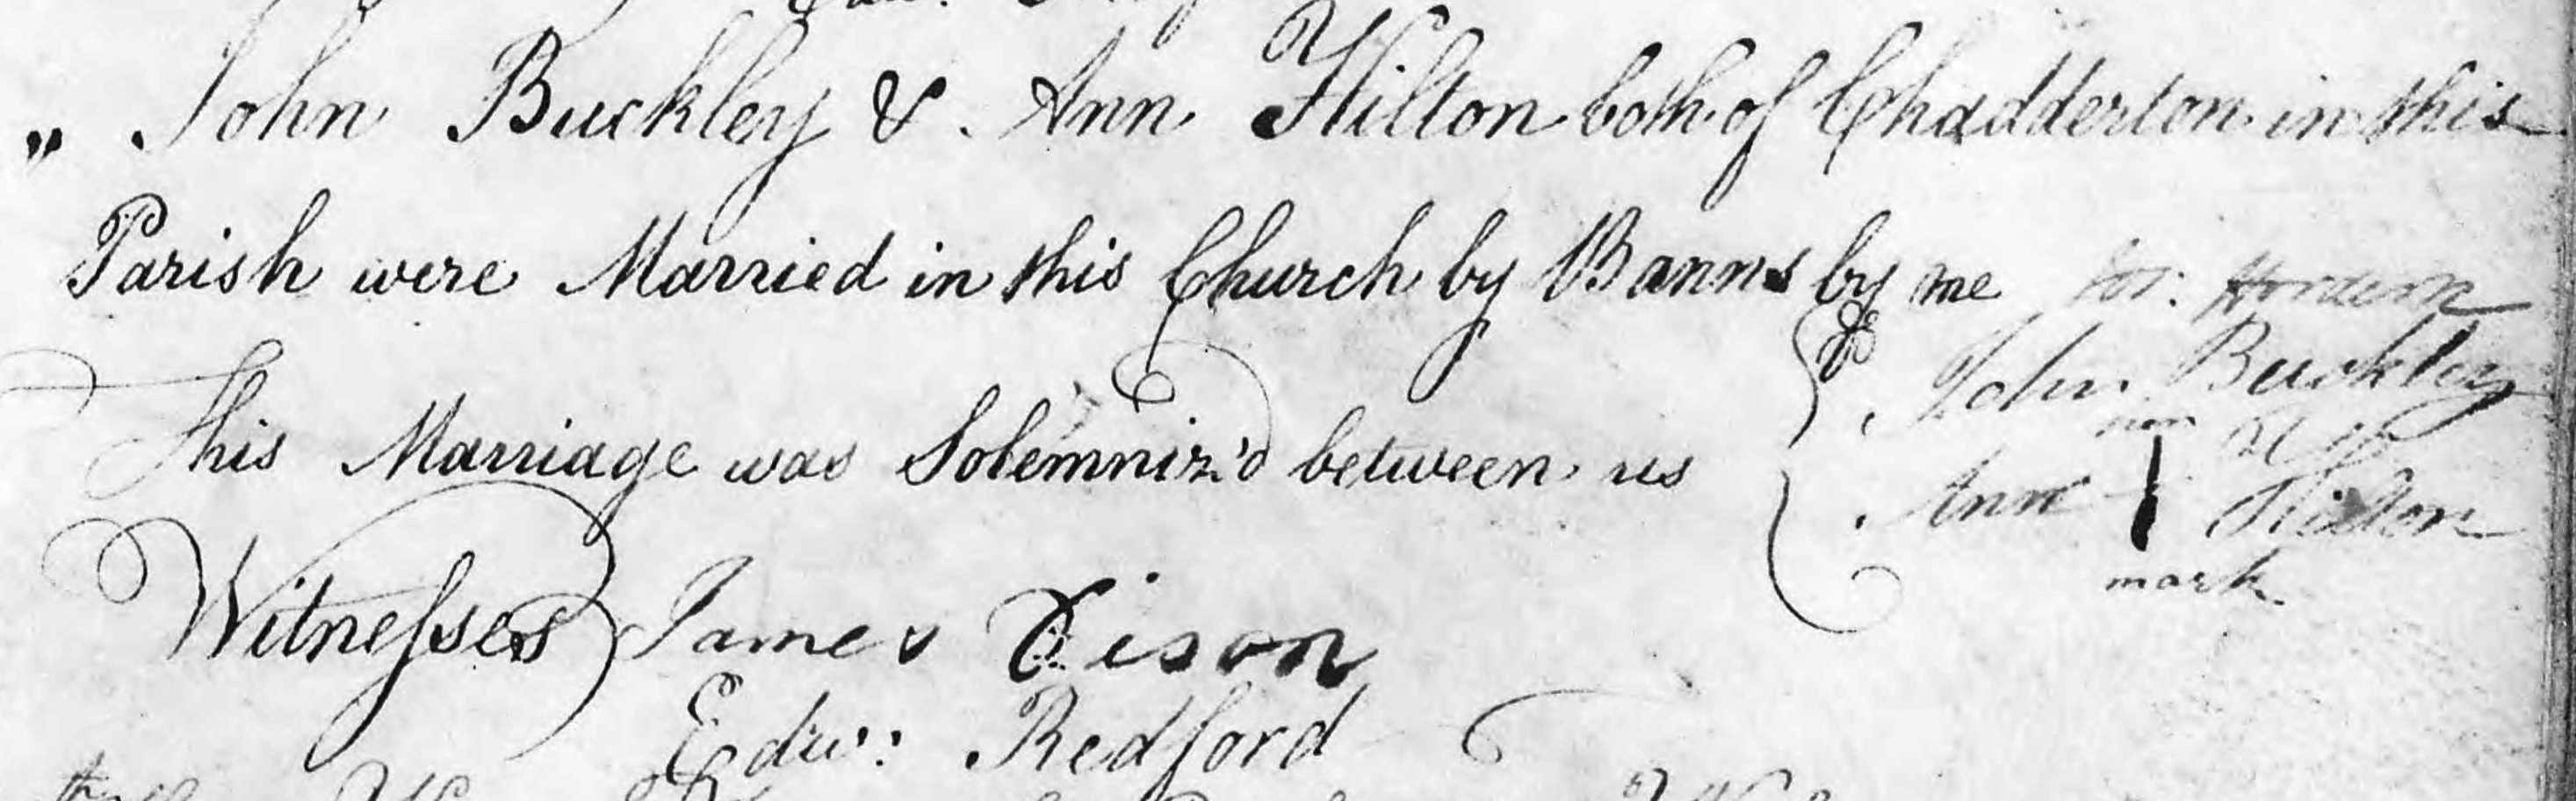 " John Buckley & Ann Hilton both of Chadderton in this
Parish were Married in this Church by Banns by me
John Buckley
This Marriage was Solemniz'd between us
her
Ann Hilton
mark
Witnesses James Dison
Edw: Redford